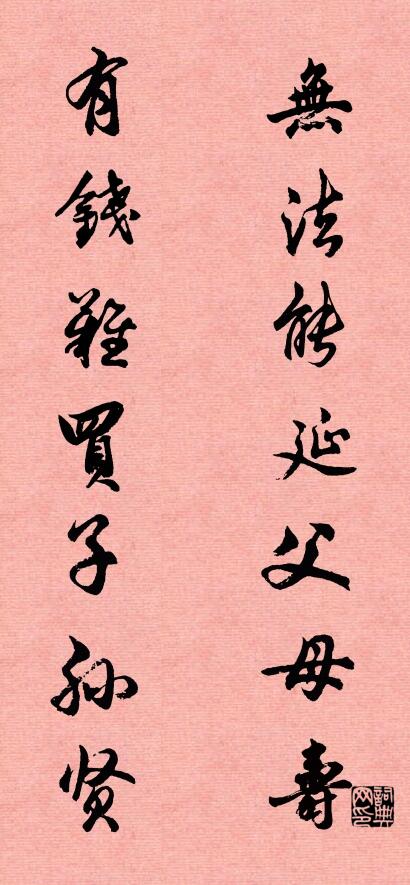 無法能延父母壽
有錢難買子孙贤
詞典
网印